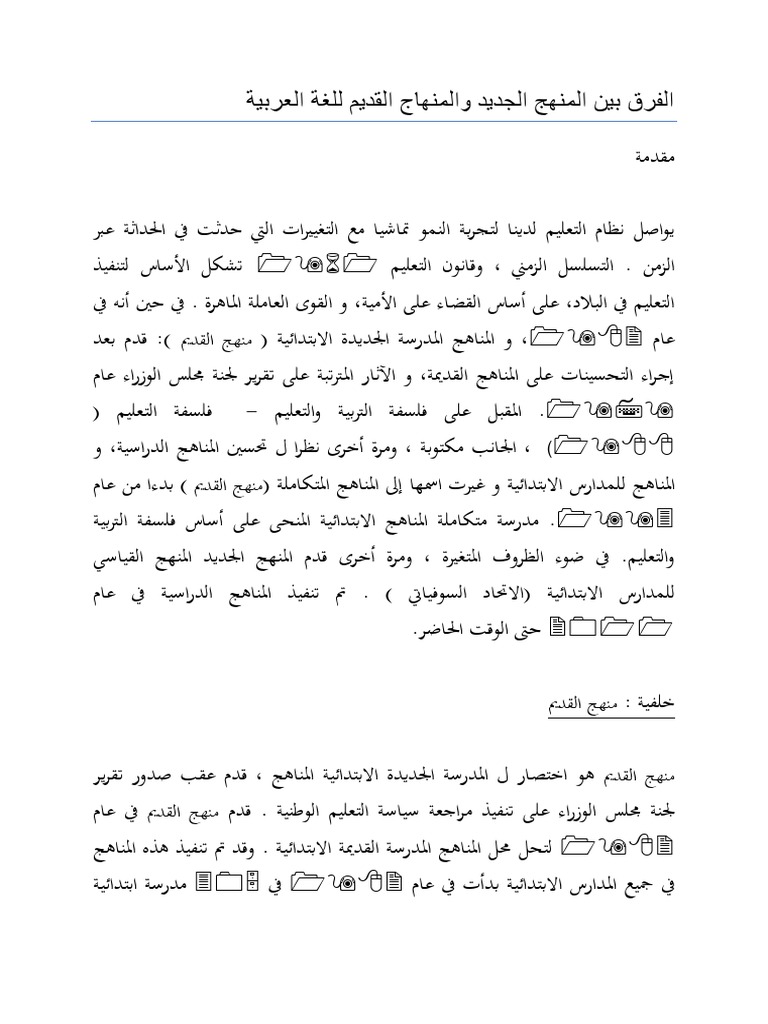 الفرق بين المنهج الجديد والمنهاج القديم للغة العربية
مقدمة
يواصل نظام التعليم لدينا لتجربة النمو تماشيا مع التغييرات التي حدثت في الحداثة عبر
الزمن . التسلسل الزمني ، وقانون التعليم تشكل الأساس لتنفيذ
التعليم في البلاد، على أساس القضاء على الأمية، و القوى العاملة الماهرة . في حين أنه في
عام ، و المناهج المدرسة الجديدة الابتدائية ( منهج القديم ): قدم بعد
إجراء التحسينات على المناهج القديمة، و الآثار المترتبة على تقرير لجنة مجلس الوزراء عام
. المقبل على فلسفة التربية والتعليم – فلسفة التعليم (
) ، الجانب مكتوبة ، ومرة أخرى نظرا ل تحسين المناهج الدراسية، و
المناهج للمدارس الابتدائية و غيرت اسمها إلى المناهج المتكاملة (منهج القديم ) بدءا من عام
. مدرسة متكاملة المناهج الابتدائية المنحى على أساس فلسفة التربية
والتعليم. في ضوء الظروف المتغيرة ، ومرة أخرى قدم المنهج الجديد المنهج القياسي
للمدارس الابتدائية (الاتحاد السوفياتي ) . تم تنفيذ المناهج الدراسية في عام
حتى الوقت الحاضر.
خلفية : منهج القديم
منهج القديم هو اختصار ل المدرسة الجديدة الابتدائية المناهج ، قدم عقب صدور تقرير
لجنة مجلس الوزراء على تنفيذ مراجعة سياسة التعليم الوطنية . قدم منهج القديم في عام
لتحل محل المناهج المدرسة القديمة الابتدائية . وقد تم تنفيذ هذه المناهج
في جميع المدارس الابتدائية بدأت في عام في مدرسة ابتدائية